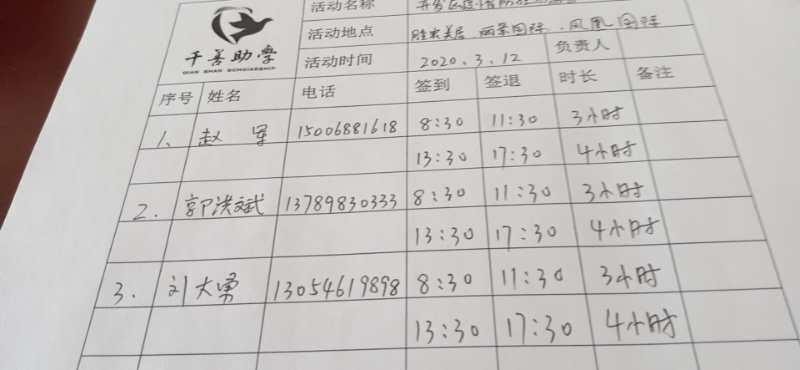 活动名称 开发区疫情防控
活动地点 胜宏美居 丽景国际、凤凰国际
千善助学
QIAN SHAN
活动时间 2020.3.12 负责人
序号 姓名 电话 签到 签退 时长 备注
1、 赵军 15006881618 8:30 11:30 3小时
13:30 17:30 4小时
2. 郭洪斌 13789830333 8:30 11:30 3小时
13:30 17:30 4小时
3. 刘大勇 13054619898 8:30 11:30 3小时
13:30 17:30 4小时